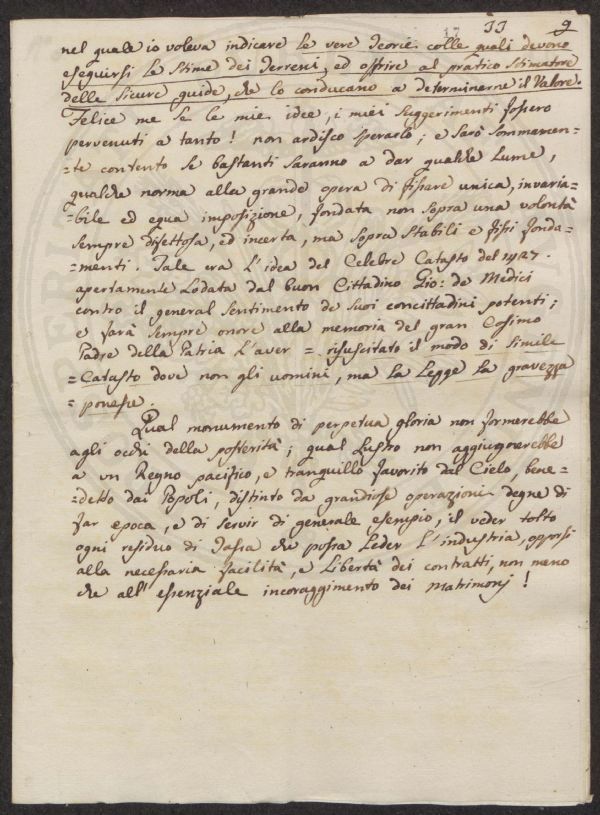 33 9
nel quale io voleva indicare le vere Teorie colle quali devono
eseguirsi le Stime dei Terreni, ed offrire al pratico Stimatore
delle Sicure guide, che lo conducano a determinarne il Valore.
Felice me se le mie idee, i miei Suggerimenti fossero
pervenuti a tanto! non ardisco sperarlo; e sarò sommamen=
=te contento se bastanti saranno a dar qualche Lume,
qualche norma alla grande opera di fissare unica, invaria=
=bile ed equa imposizione, fondata non sopra una volontà
sempre difettosa, ed incerta, ma sopra stabili e fissi fonda=
=menti. Tale era l'idea del Celebre Catasto del 1427.
apertamente Lodata dal buon Cittadino Gio: de Medici
contro il general sentimento de suoi concittadini potenti;
e sarà sempre onore alla memoria del gran Cosimo
Padre della Patria l'aver = risuscitato il modo di simile
=Catasto dove non gli uomini, ma la Legge la gravezza
=ponesse.
Qual monumento di perpetua gloria non formerebbe
agli occhi della posterità; qual Lustro non aggiugnerebbe
a un Regno pacifico, e tranquillo favorito dal Cielo, bene=
=detto dai Popoli, distinto da grandiose operazioni degne di
far epoca, e di servir di generale esempio, il veder tolto
ogni residuo di Tassa che possa Leder l'industria, opporsi
alla necessaria facilità, e Libertà dei contratti, non meno
che all'essenziale incoraggimento dei Matrimonj!